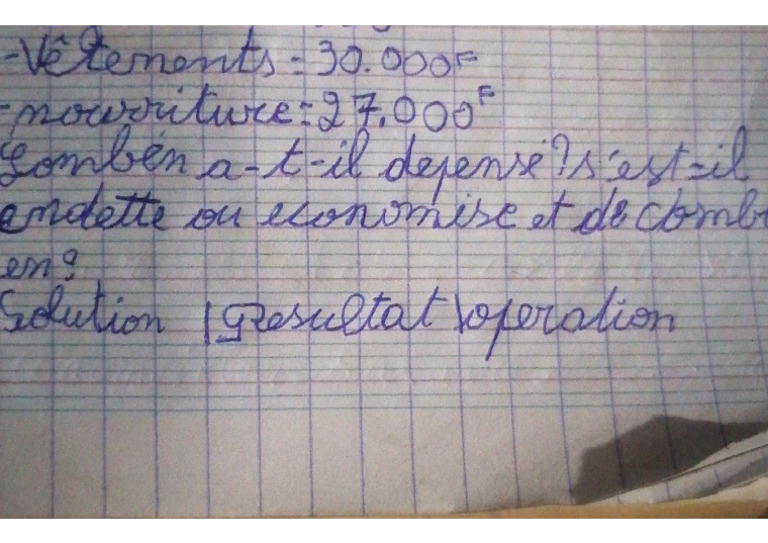 -Vêtements = 30.000F
-nourriture = 27.000F
Combien a-t-il depensé? s'est-il
endette ou economise et de combi
en?
Solution | Resultat | operation